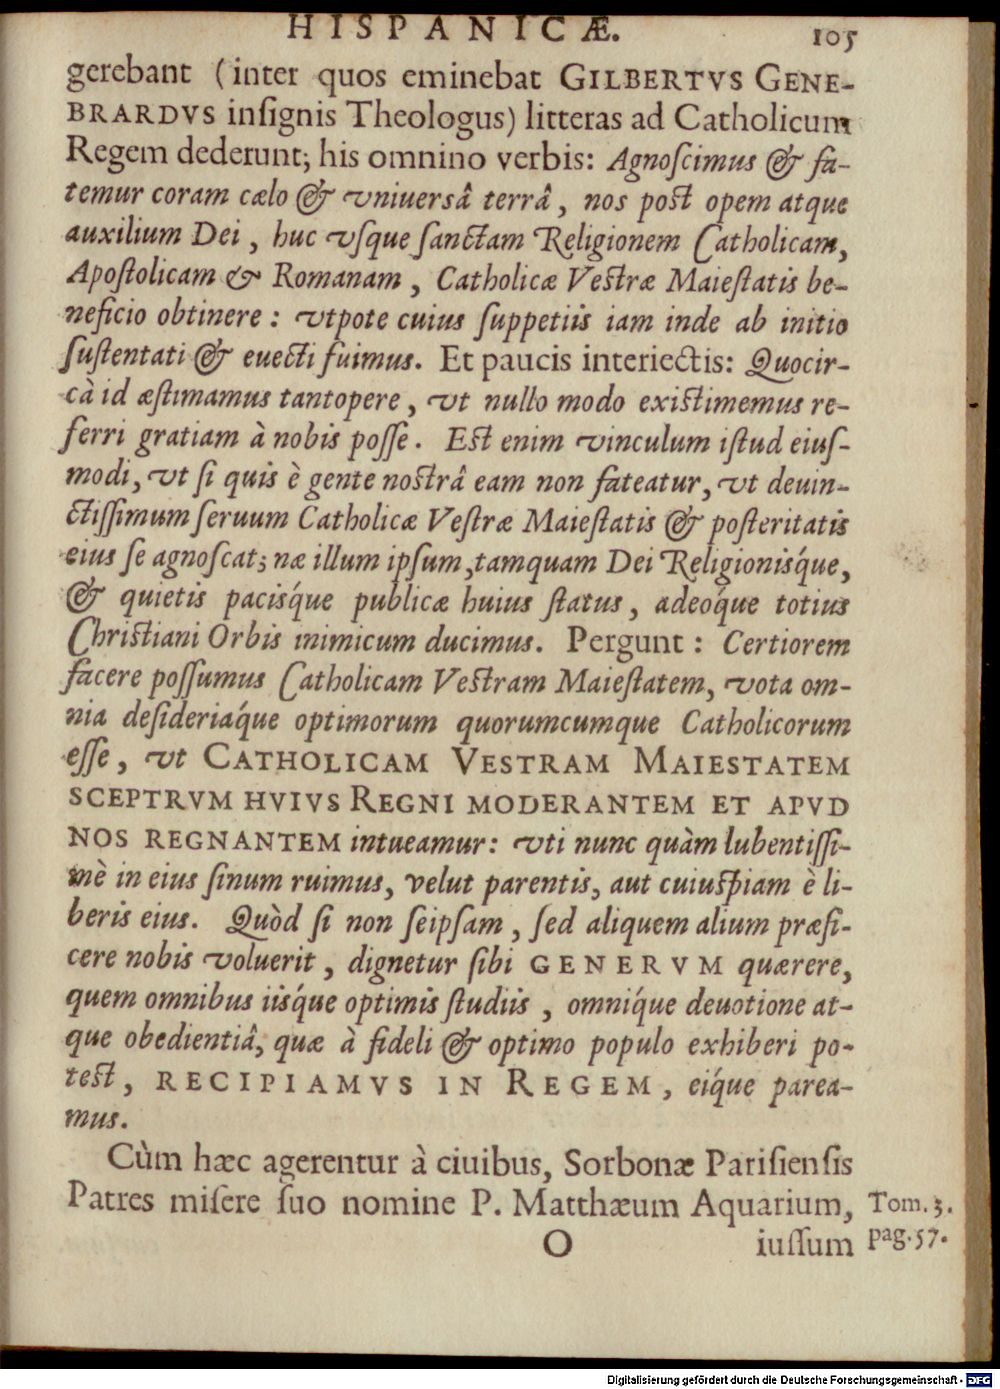 HISPANICÆ. 105
gerebant (inter quos eminebat GILBERTVS GENE-
BRARDVS inſignis Theologus) litteras ad Catholicum
Regem dederunt; his omnino verbis: Agnoſcimus & fa-
temur coram cælo & vniuersâ terrâ, nos poſt opem atque
auxilium Dei, huc vſque ſanctam Religionem Catholicam,
Apoſtolicam & Romanam, Catholicæ Veſtræ Maieſtatis be-
neficio obtinere: vtpote cuius ſuppetiis iam inde ab initio
ſuſtentati & euecti fuimus. Et paucis interiectis: Quocir-
cà id æſtimamus tantopere, vt nullo modo exiſtimemus re-
ferri gratiam à nobis poſſe. Eſt enim vinculum iſtud eiuſ-
modi, vt ſi quis è gente noſtrâ eam non fateatur, vt deuin-
ctiſſimum ſeruum Catholicæ Veſtræ Maieſtatis & poſteritatis
eius ſe agnoſcat; næ illum ipſum, tamquam Dei Religionisq́ue,
& quietis pacisq́ue publicæ huius ſtatus, adeoq́ue totius
Chriſtiani Orbis inimicum ducimus. Pergunt: Certiorem
facere poſſumus Catholicam Veſtram Maieſtatem, vota om-
nia deſideriaq́ue optimorum quorumcumque Catholicorum
eſſe, vt CATHOLICAM VESTRAM MAIESTATEM
SCEPTRVM HVIVS REGNI MODERANTEM ET APVD
NOS REGNANTEM intueamur: vti nunc quàm lubentiſſi-
mè in eius ſinum ruimus, velut parentis, aut cuiuſpiam è li-
beris eius. Quòd ſi non ſeipſam, ſed aliquem alium præfi-
cere nobis voluerit, dignetur ſibi GENERVM quærere,
quem omnibus iisq́ue optimis ſtudiis, omniq́ue deuotione at-
que obedientiâ, quæ à fideli & optimo populo exhiberi po-
teſt, RECIPIAMVS IN REGEM, eiq́ue parea-
mus.
Cùm hæc agerentur à ciuibus, Sorbonæ Pariſienſis
Patres miſere ſuo nomine P. Matthæum Aquarium, Tom. 3.
O iuſſum pag. 57.
Digitalisierung gefördert durch die Deutsche Forschungsgemeinschaft - DFG